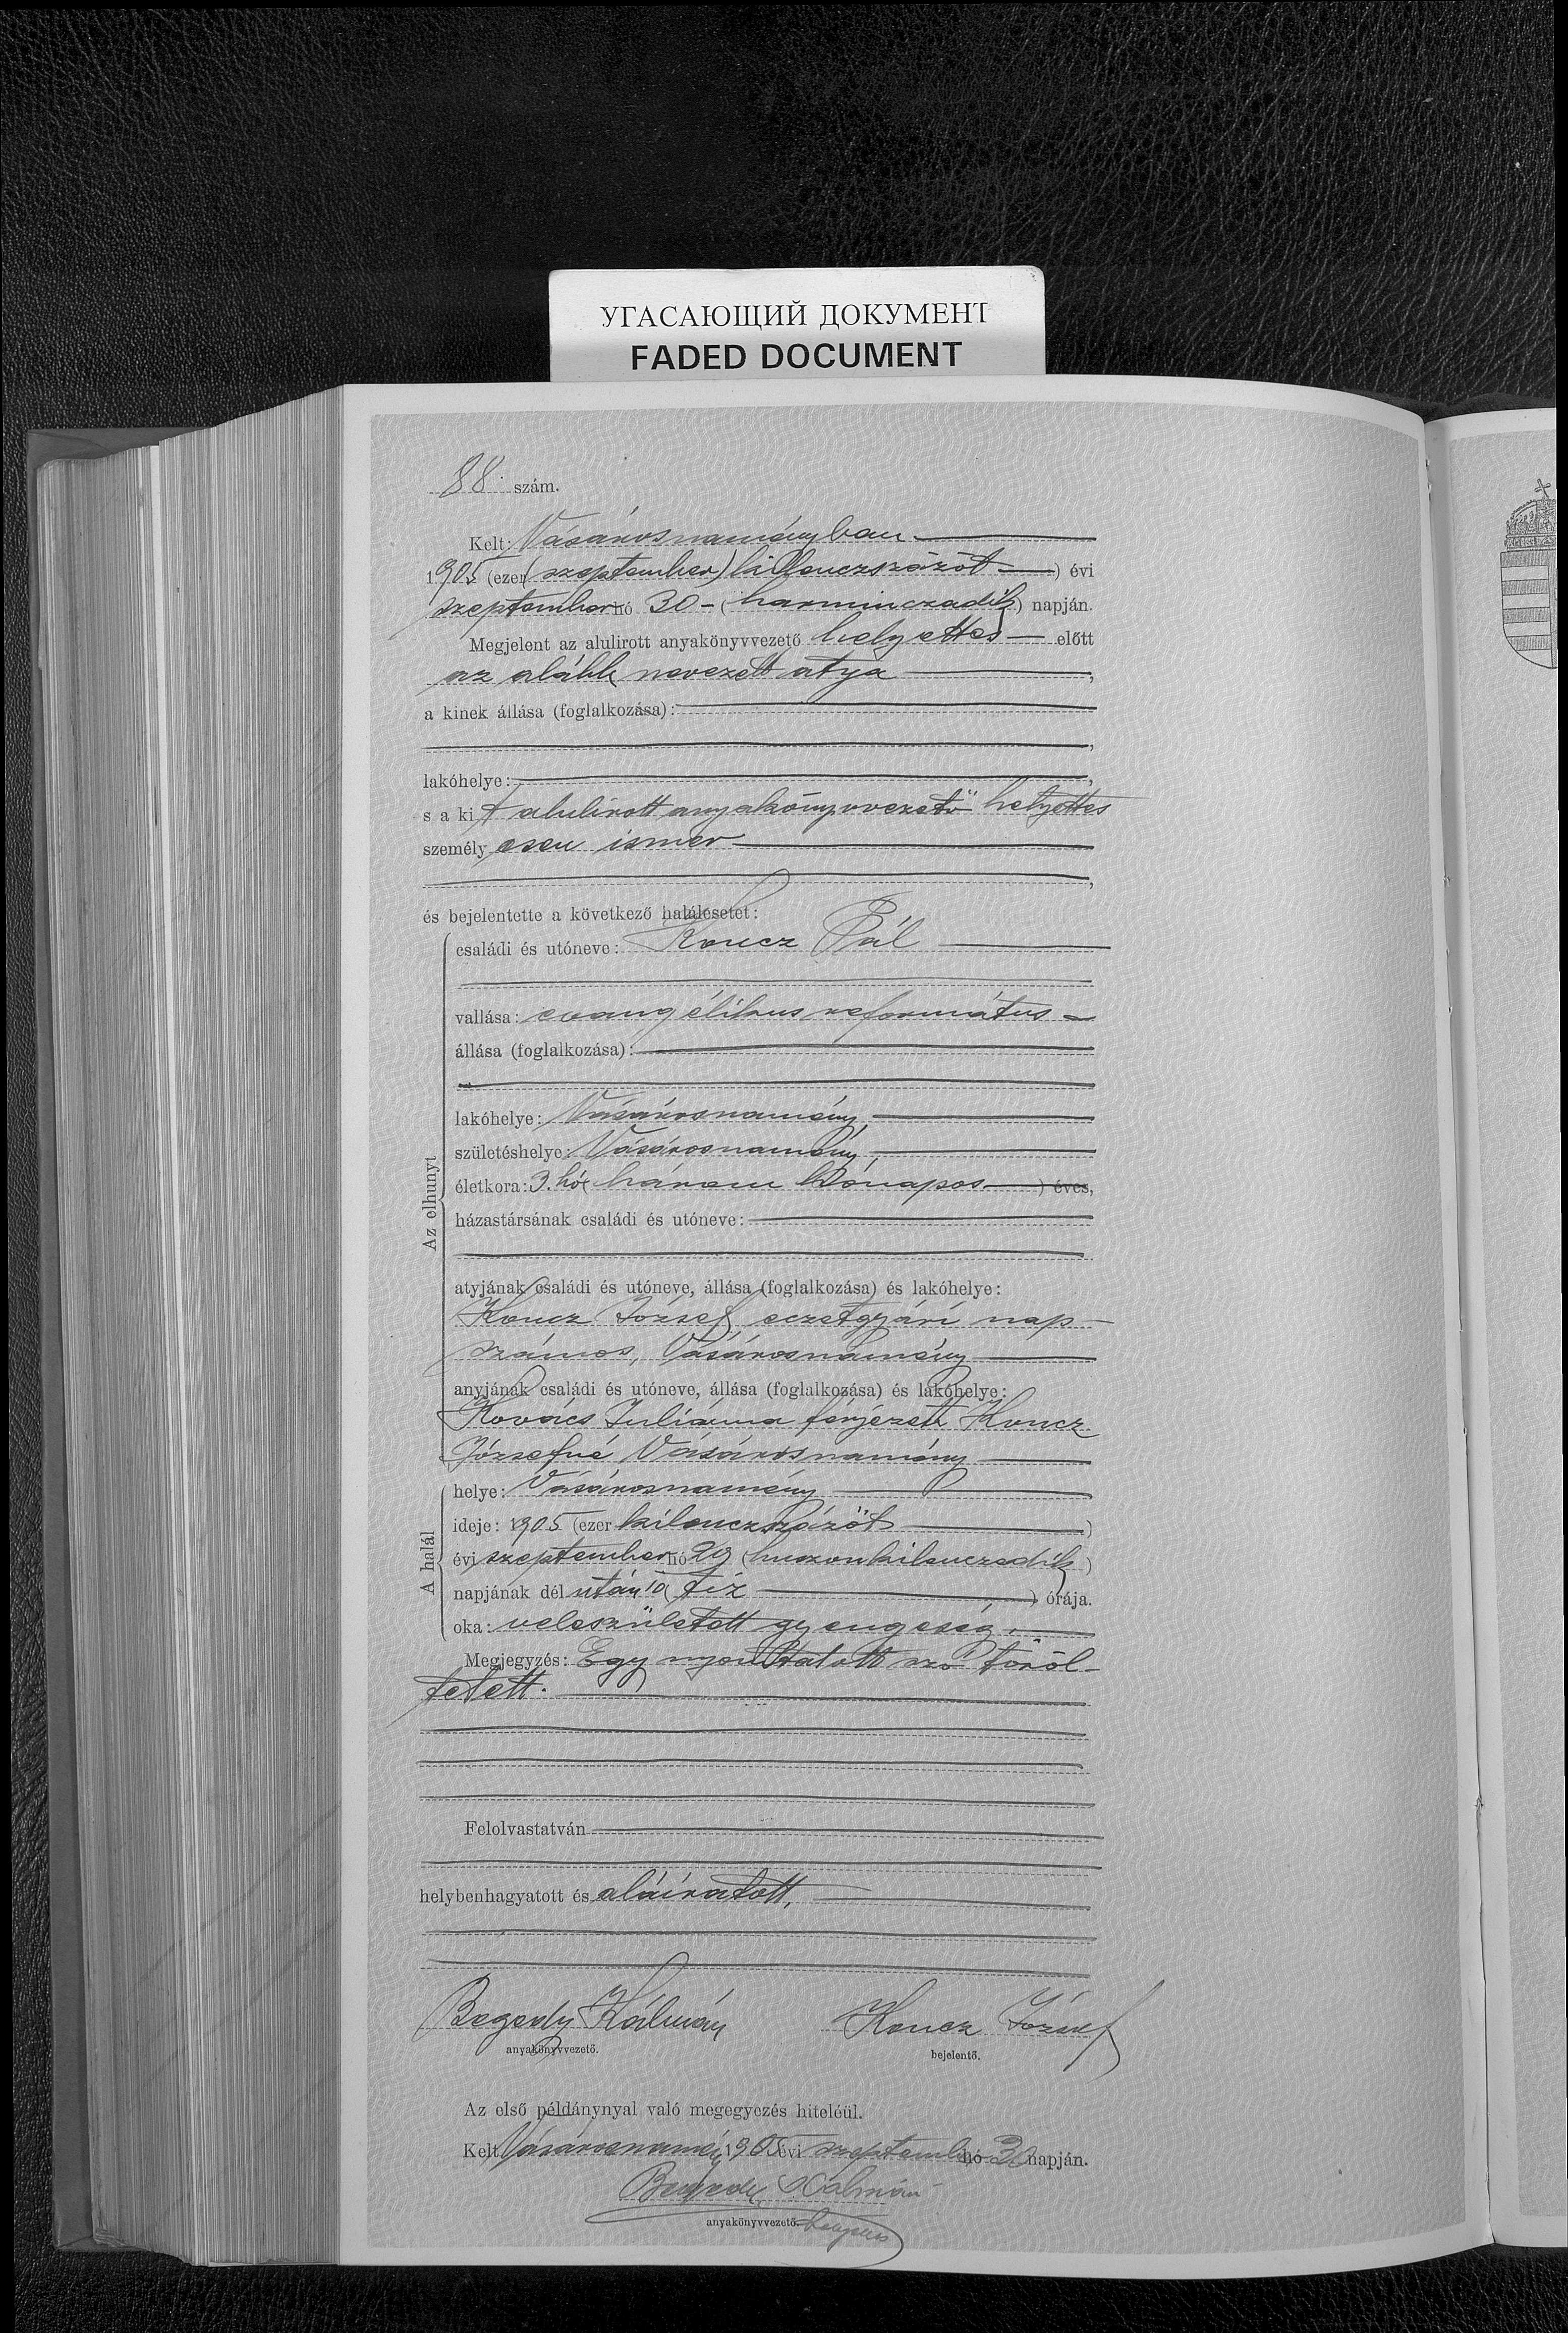 УГАСАЮЩИЙ ДОКУМЕНТ
FADED DOCUMENT
88. szám.
Kelt: Vásárosnaményban
1905 (ezer (szeptember) killenczszázöt ) évi
szeptember hó 30 - (harminczadik) napján.
Megjelent az alulirott anyakönyvvezető helyettes előtt
az alább nevezett atya ,
a kinek állása (foglalkozása):
,
lakóhelye: ,
s a kit alulirott anyakönyvvezető helyettes
személyesen ismer
,
és bejelentette a következő halálesetet:
Az elhunyt
családi és utóneve: Koncz Pál
vallása: evangélikus református
állása (foglalkozása):
lakóhelye: Vásárosnamény,
születéshelye: Vásárosnamény,
életkora: 3. hó ( három hónapos ) éves,
házastársának családi és utóneve:
atyjának családi és utóneve, állása (foglalkozása) és lakóhelye:
Koncz József eczetgyári nap-
számos, Vásárosnamény
anyjának családi és utóneve, állása (foglalkozása) és lakóhelye:
Kovács Juliánna férjezett Koncz
Józsefné Vásárosnamény
A halál
helye: Vásárosnamény
ideje: 1905 (ezer kilenczszázöt )
évi szeptember hó 29 (huszonkilenczedik)
napjának dél után 10 ( tiz ) órája.
oka: veleszületett gyengeség.
Megjegyzés: Egy nyomtatott szó töröl-
tetett.
Felolvastatván
helybenhagyatott és aláiratott.
Begedy Kálmán Koncz József
anyakönyvvezető. bejelentő.
Az első példánynyal való megegyezés hiteléül.
Kelt Vásárosnamény 1905 évi szeptember hó 30 napján.
Begedy Kálmán
anyakönyvvezető. helyettes